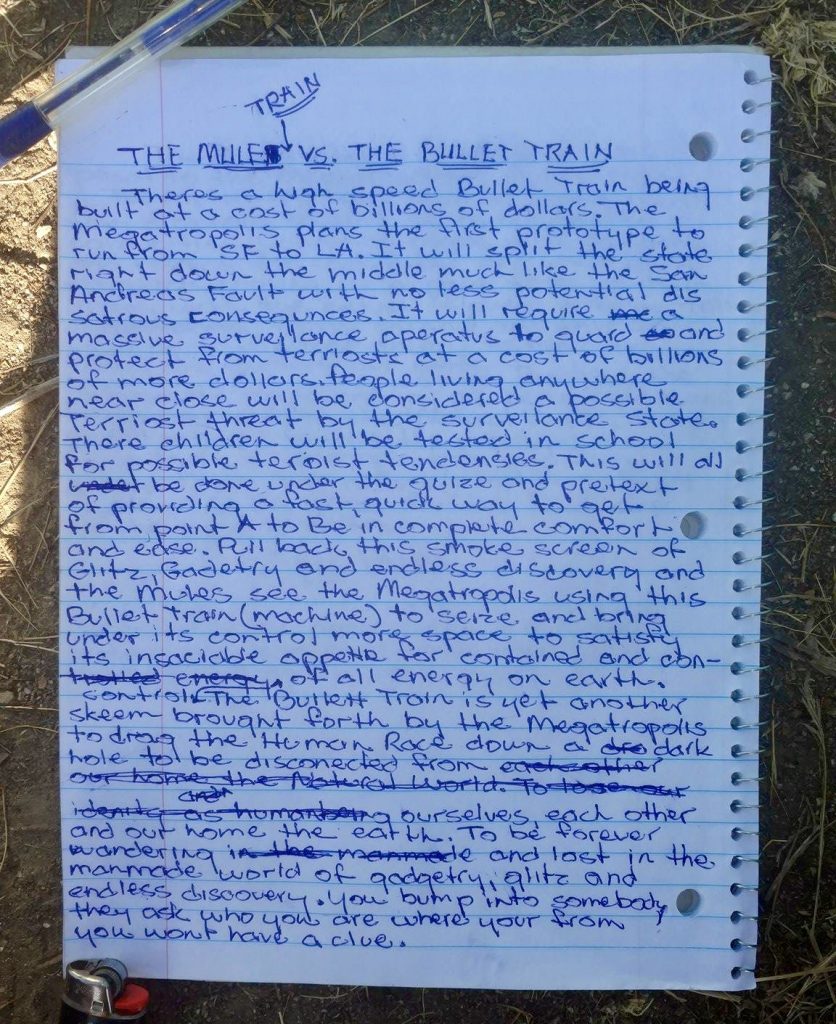 TRAIN
THE MULE VS. THE BULLET TRAIN
Theres a high speed Bullet Train being
built at a cost of billions of dollars. The
Megatropolis plans the first prototype to
run from SF to LA. It will split the state
right down the middle much like the San
Andreas Fault with no less potential dis
satrous consequnces. It will require a
massive surveilance aperatus to guard and
protect from terriosts at a cost of billions
of more dollars. People living anywhere
near close will be considered a possible
Terriost threat by the surveilance state.
There children will be tested in school
for possible teroist tendensies. This will all
be done under the guize and pretext
of providing a fast, quick way to get
from point A to Be in complete comfort
and ease. Pull back this smoke screen of
Glitz, Gadetry and endless discovery and
the mules see the Megatropolis using this
Bullet Train (machine) to seize and bring
under its control more space to satisfy
its insaciable appetite for contained and con-
trolled energy, of all energy on earth.
control. The Bullett Train is yet another
skeem brought forth by the Megatropolis
to drag the Human Race down a dark
hole to be disconected from each other
our home the Natural World. To lose our
and
idenity as humanbeing ourselves, each other
and our home the earth. To be forever
wandering in the manmade and lost in the
manmade world of gadgetry, glitz and
endless discovery. You bump into somebody
they ask who you are where your from
you wont have a clue.